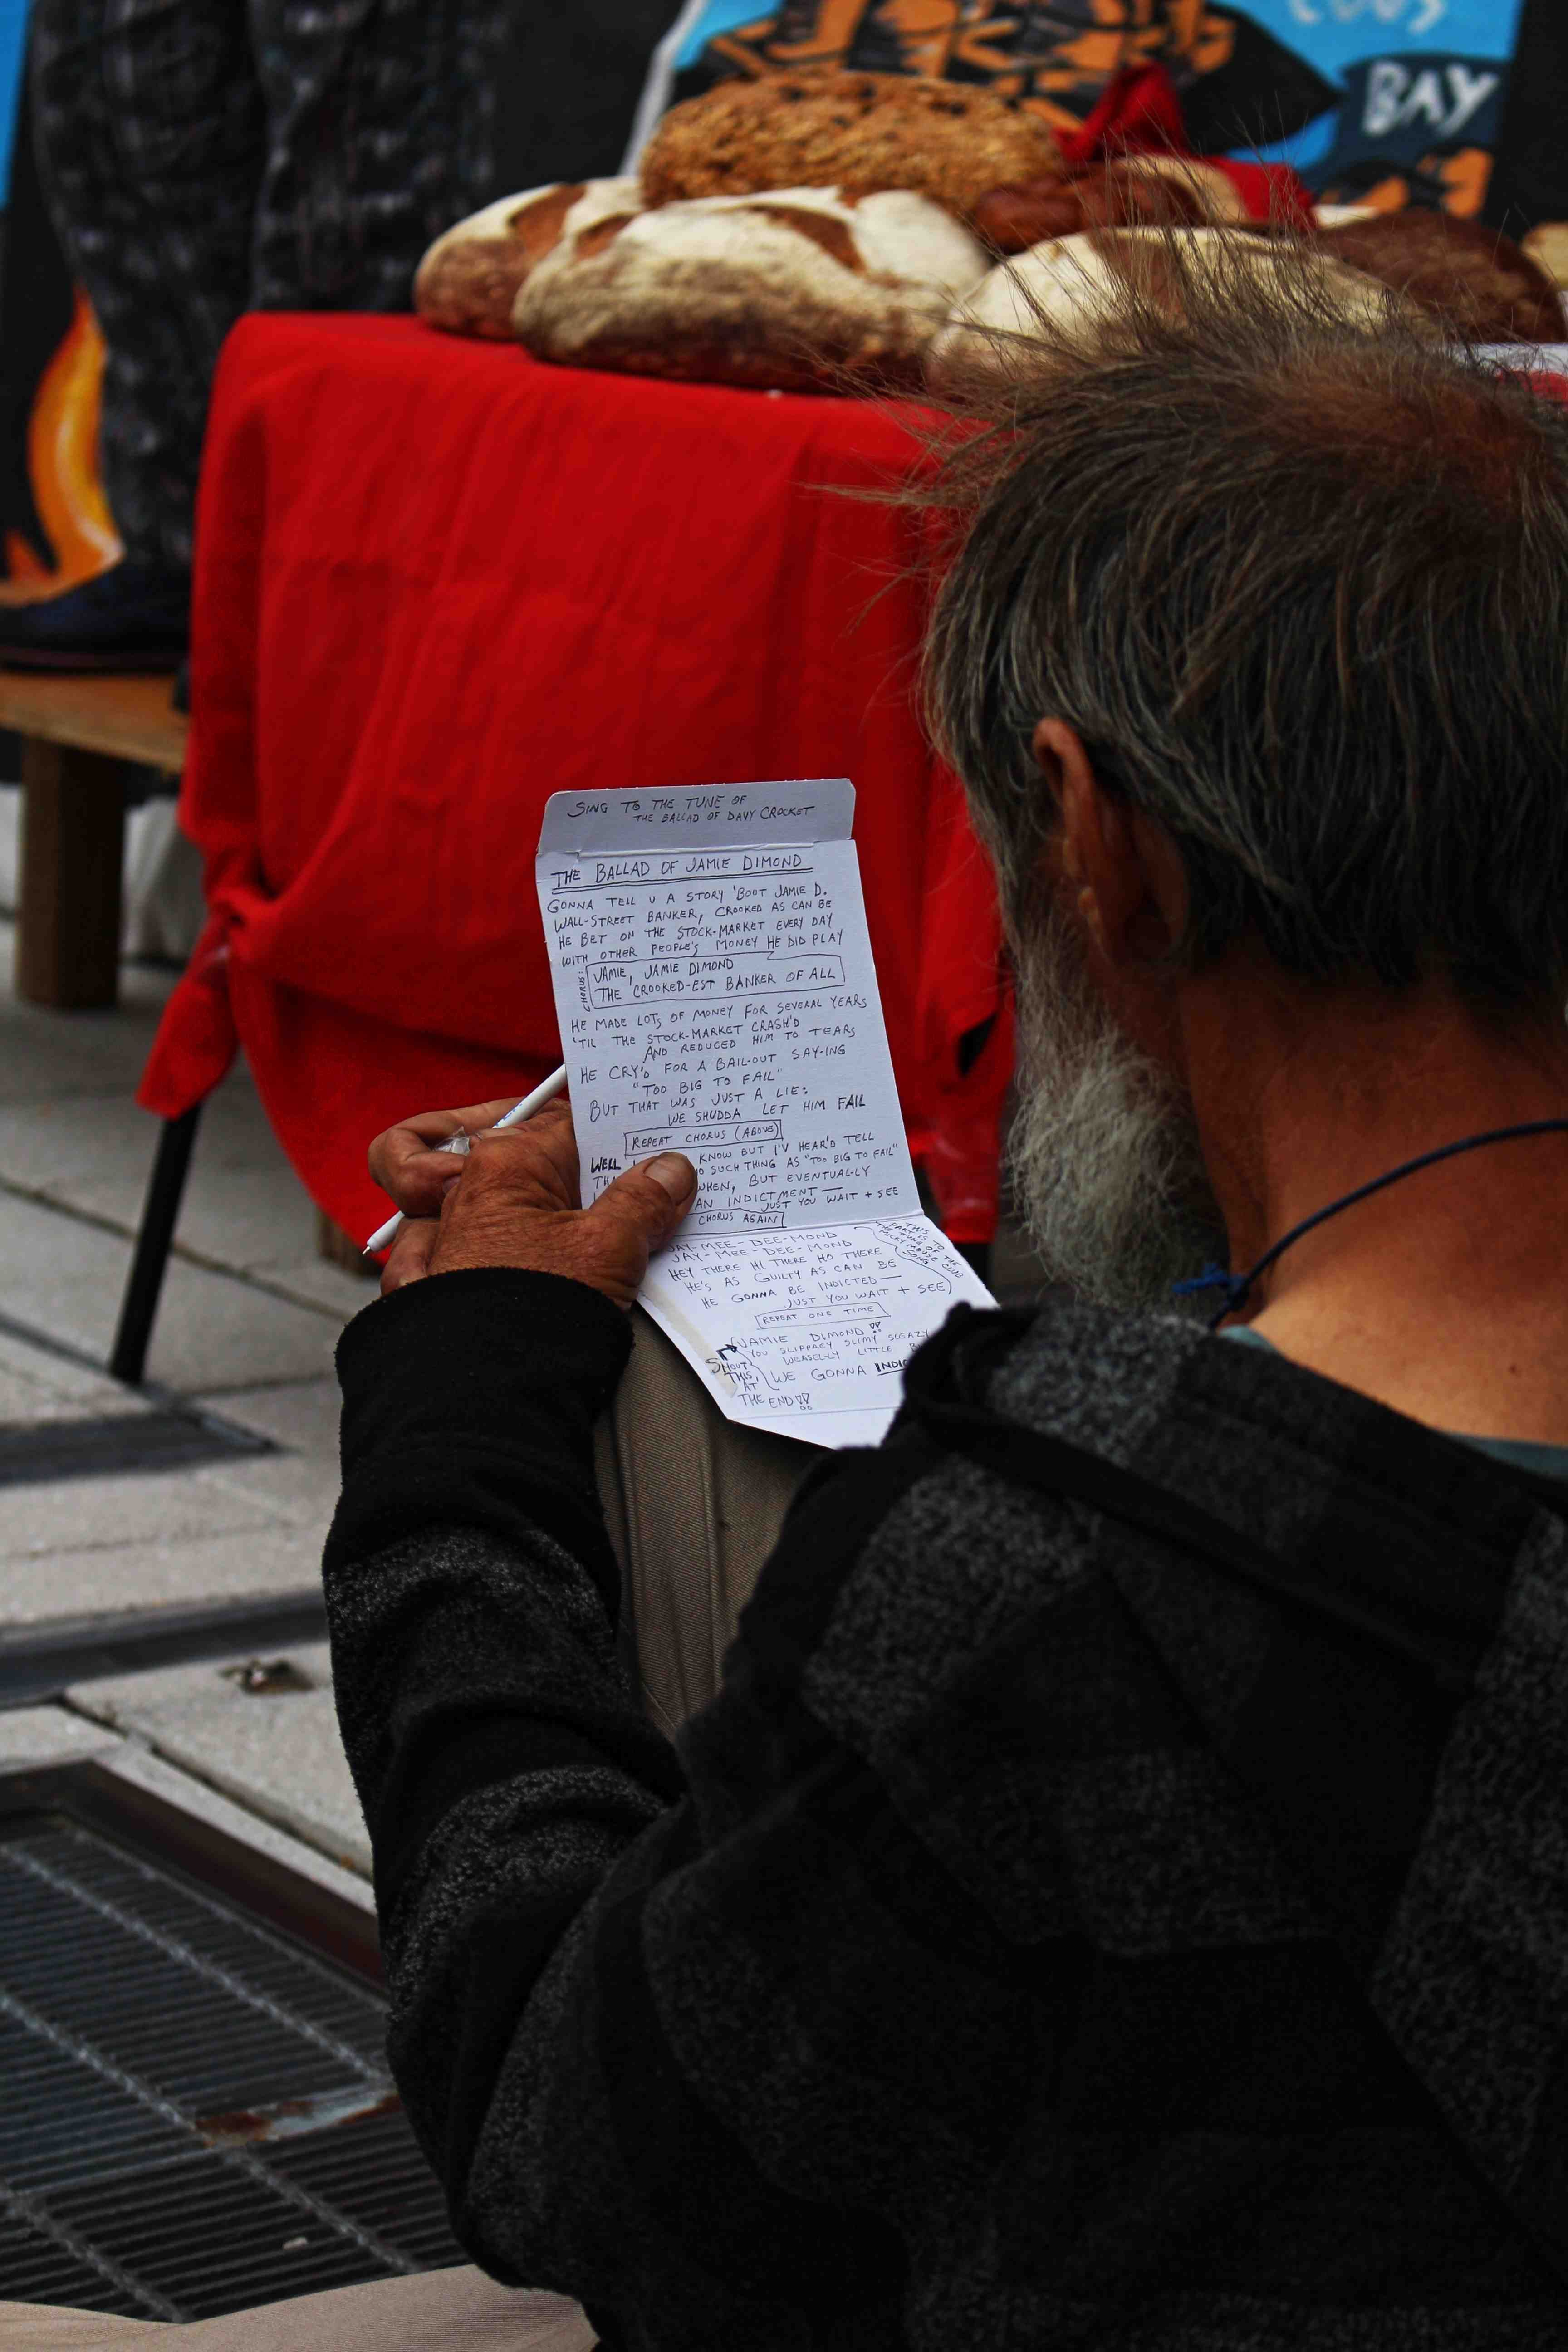 BAY
SING TO THE TUNE OF
THE BALLAD OF DAVY CROCKET
THE BALLAD OF JAMIE DIMOND
GONNA TELL U A STORY 'BOUT JAMIE D.
WALL-STREET BANKER, CROOKED AS CAN BE
HE BET ON THE STOCK-MARKET EVERY DAY
WITH OTHER PEOPLE'S MONEY HE DID PLAY
CHORUS:
JAMIE, JAMIE DIMOND
THE CROOKED-EST BANKER OF ALL
HE MADE LOTS OF MONEY FOR SEVERAL YEARS
'TIL THE STOCK-MARKET CRASH'D
AND REDUCED HIM TO TEARS
HE CRY'D FOR A BAIL-OUT SAY-ING
"TOO BIG TO FAIL"
BUT THAT WAS JUST A LIE:
WE SHUDDA LET HIM FAIL
REPEAT CHORUS (ABOVE)
WELL KNOW BUT I'V HEAR'D TELL
SUCH THING AS "TOO BIG TO FAIL"
WHEN, BUT EVENTUAL-LY
AN INDICTMENT —
JUST YOU WAIT + SEE
CHORUS AGAIN
JAY-MEE-DEE-MOND
JAY-MEE-DEE-MOND
HEY THERE HI THERE HO THERE
HE'S AS GUILTY AS CAN BE
HE GONNA BE INDICTED —
JUST YOU WAIT + SEE
THIS
PART IS TO
THE TUNE OF THE
MICKY MOUSE CLUB
SONG
REPEAT ONE TIME
JAMIE DIMOND!!
YOU SLIPPREY SLIMY SLEAZY
WEASEL-LY LITTLE
WE GONNA
SHOUT
THIS
AT
THE END!!